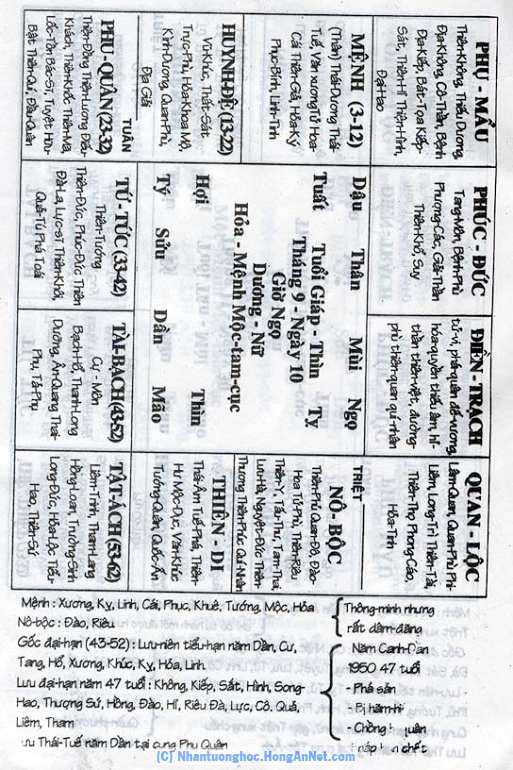 PHỤ - MẪU
Thiên-Không, Thiếu Dương,
Địa-Không, Cô-Thần, Bệnh
Địa-Kiếp, Bát-Tọa Kiếp-
Sát, Thiên-Hỉ Thiên-Hình,
Đại-Hao
MỆNH (3-12)
(Thân) Thái-Dương Thái-
Tuế, Văn xương Tử Hoa-
Cái Thiên-Giả, Hóa-Kỵ
Phục-Binh, Linh-Tinh
HUYNH-ĐỆ (13-22)
Vũ-Khúc, Thất-Sát
Trực-Phù, Hóa-Khoa Mộ,
Kình-Dương, Quan-Phủ,
Địa Giải
PHU-QUÂN (23-32)
TUẦN
Thiên-Đồng Thiên-Lương Điếu-
Khách, Thiên-Khốc Thiên-Mã,
Lộc-Tồn Bác-Sĩ, Tuyệt Hữu-
Bật Thiên-Quí, Đẩu-Quân
PHÚC - ĐỨC
Tang-Môn, Bệnh-Phù
Phượng-Các, Giải-Thần
Thiên-Khổ, Suy
TỬ - TỨC (33-42)
Thiên-Tướng
Thiên-Đức, Phúc-Đức Thiên
Đà-La, Lực-sĩ Thiên-Khôi,
Quả-Tú Phá Toái
ĐIỀN - TRẠCH
tử-vi, phá-quân đế-vượng,
hóa-quyền thiếu âm, hỉ-
thần thiên-việt, đường-
phù thiên-quan quí-nhân
TÀI-BẠCH (43-52)
Cự - Môn
Bạch-Hổ, Thanh-Long
Dưỡng, Ân-Quang Thai-
Phụ, Tả-Phụ
QUAN - LỘC
Lâm-Quan, Quan-Phù Phi-
Liêm, Long-Trì Thiên-Tài,
Thiên-Thọ Phong-Cáo,
Hỏa-Tinh
NÔ - BỘC
TRIỆT
Thiên-Phủ Quan-Đô, Đào-
Hoa Tử-Phù, Thiên-Riêu
Thiên-Y, Tấu-Thư, Tam-Thai,
Lưu-Hà, Nguyệt-Đức Thiên-
Thương Thiên-Phúc Quí-Nhân
THIÊN - DI
Thái-Âm Tuế-Phá, Thiên-
Hư Mộc-Dục, Văn-Khúc
Tướng-Quân, Quốc-Ấn
TẬT-ÁCH (53-62)
Liêm-Trinh, Tham-Lang
Hồng-Loan, Trường-Sinh
Long-Đức, Hóa-Lộc Tiểu-
Hao, Thiên-Sứ
Dậu Thân Mùi Ngọ
Tuất Tỵ
Tuổi Giáp - Thìn
Tháng 9 - Ngày 10
Giờ Ngọ
Dương - Nữ
Hỏa - Mệnh Mộc-tam-cục
Hợi Thìn
Tý Sửu Dần Mão
Mệnh : Xương, Kỵ, Linh, Cái, Phục, Khuê, Tướng, Mộc, Hỏa
Nô-bộc : Đào, Riêu
Thông-minh nhưng
rất dâm-đãng
Gốc đại-hạn (43-52) : Lưu-niên tiểu-hạn năm Dần, Cự,
Tang, Hổ, Xương, Khúc, Kỵ, Hỏa, Linh
Lưu đại-hạn năm 47 tuổi : Không, Kiếp, Sát, Hình, Song-
Hao, Thượng Sứ, Hồng, Đào, Hỉ, Riêu Đà, Lực, Cô, Quả,
Liêm, Tham
Lưu Thái-Tuế năm Dần tại cung Phu Quân
Năm Canh-Dần
1950 47 tuổi
- Phá sản
- Bị hãm-hi
- Chồng
(C) Nhantuonghoc.HongAnNet.com